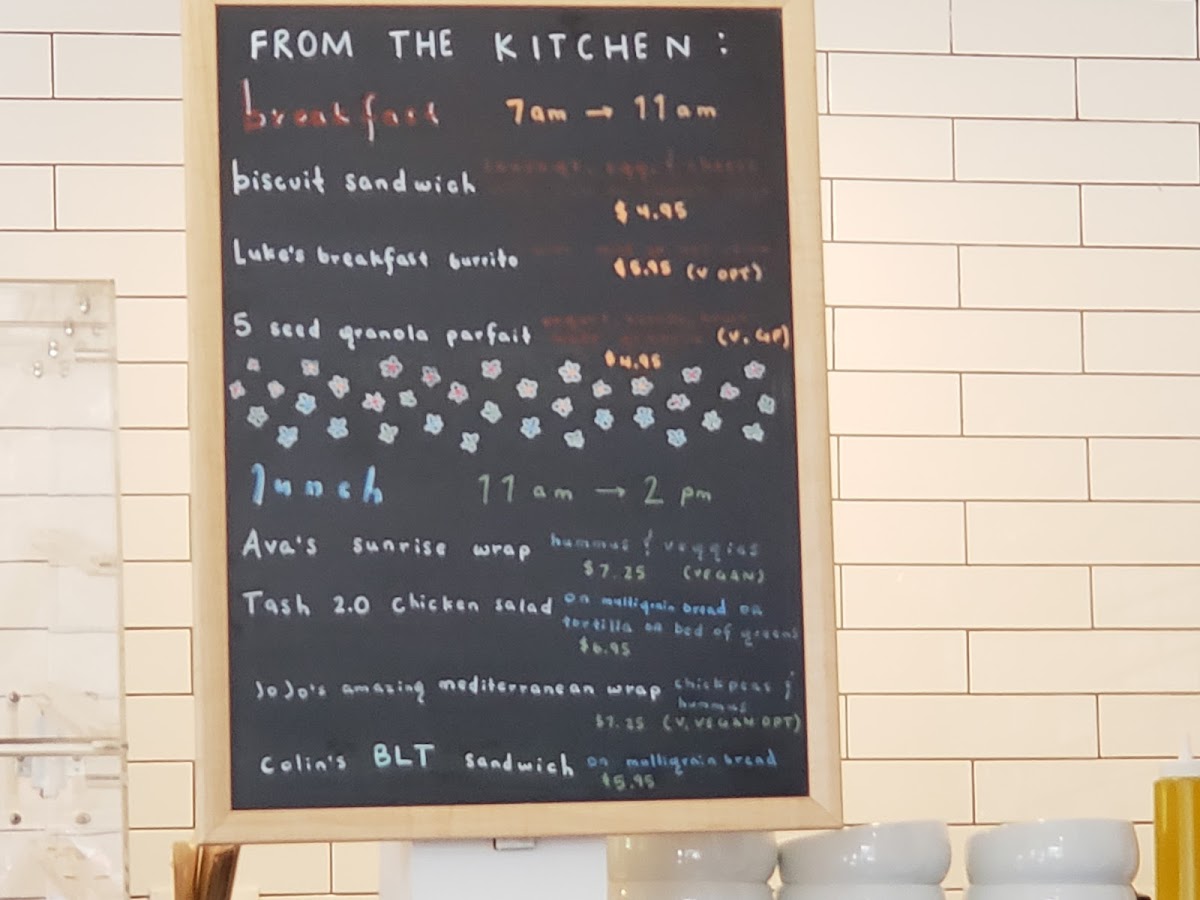 FROM THE KITCHEN:
breakfast 7am → 11am
biscuit sandwich sausage, egg, & cheese
$4.95
Luke's breakfast burrito
$6.95 (V OPT)
5 seed granola parfait (V, GF)
$4.95
lunch 11am → 2pm
Ava's sunrise wrap hummus & veggies
$7.25 (VEGAN)
Tash 2.0 chicken salad on multigrain bread or
tortilla or bed of greens
$6.95
JoJo's amazing mediterranean wrap chickpeas &
hummus
$7.25 (V, VEGAN OPT)
Colin's BLT sandwich on multigrain bread
$5.95